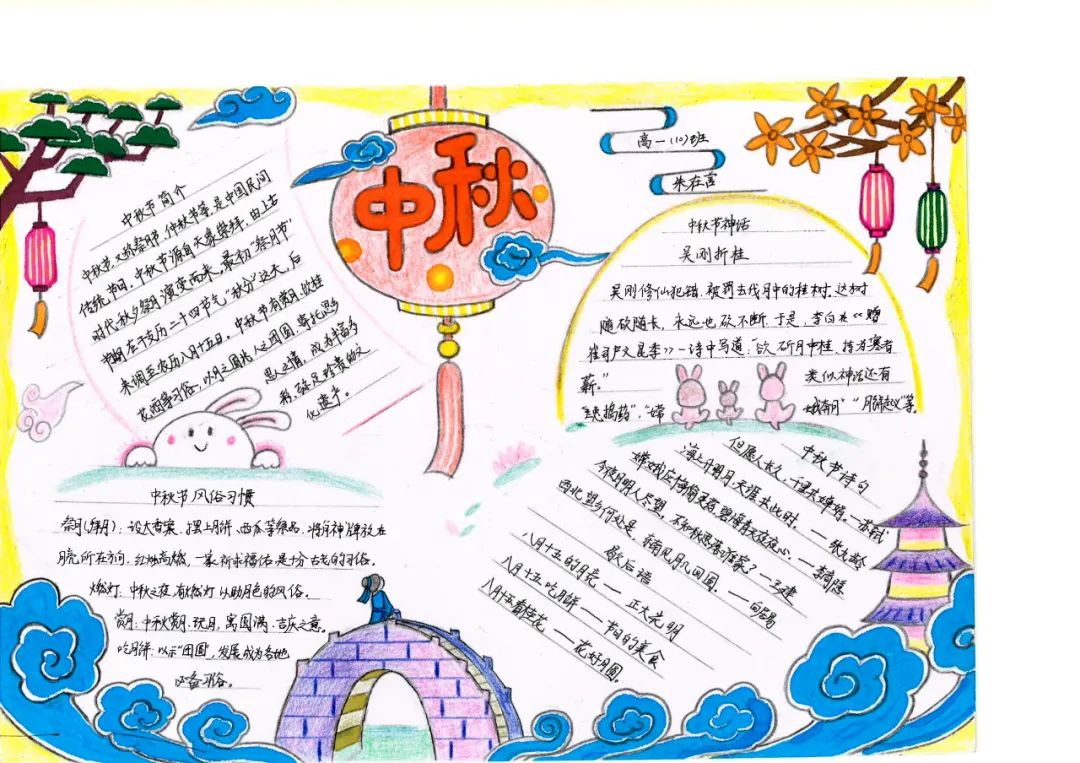 中秋
高一(10)班
朱在喜
中秋节简介
中秋节,又称祭月节、仲秋节等,是中国民间
传统节日。中秋节源自天象崇拜,由上古
时代秋夕祭月演变而来。最初"祭月节"
节期在干支历二十四节气"秋分"这天,后
来调至农历八月十五日。中秋节有赏月、饮桂
花酒等习俗,以月之圆兆人之团圆,寄托思乡
思人之情,成为丰富多
彩、弥足珍贵的文
化遗产。
中秋节神话
吴刚折桂
吴刚修仙犯错,被罚去伐月中的桂树,这树
随砍随长,永远也砍不断,于是,李白在《赠
崔司户文昆季》一诗中写道:"欲斫月中桂,持为寒者
薪。"
类似神话还有
"玉兔捣药"、"嫦
娥奔月""月饼起义"等。
中秋节风俗习惯
祭月(拜月):设大香案,摆上月饼、西瓜等祭品,将月神牌放在
月亮所在方向,红烛高燃,一家祈求福佑是十分古老的习俗。
燃灯:中秋之夜有燃灯以助月色的风俗。
赏月:中秋赏月、玩月,寓圆满、吉庆之意。
吃月饼:以示"团圆",发展成为各地
必备习俗。
中秋节诗句
但愿人长久,千里共婵娟。—苏轼
海上升明月,天涯共此时。—张九龄
嫦娥应悔偷灵药,碧海青天夜夜心。—李商隐
今夜月明人尽望,不知秋思落谁家?—王建
西北望乡何处是,东南见月几回圆。—白居易
歇后语
八月十五的月亮——正大光明
八月十五吃月饼——节日的美食
八月十五看桂花——花好月圆。